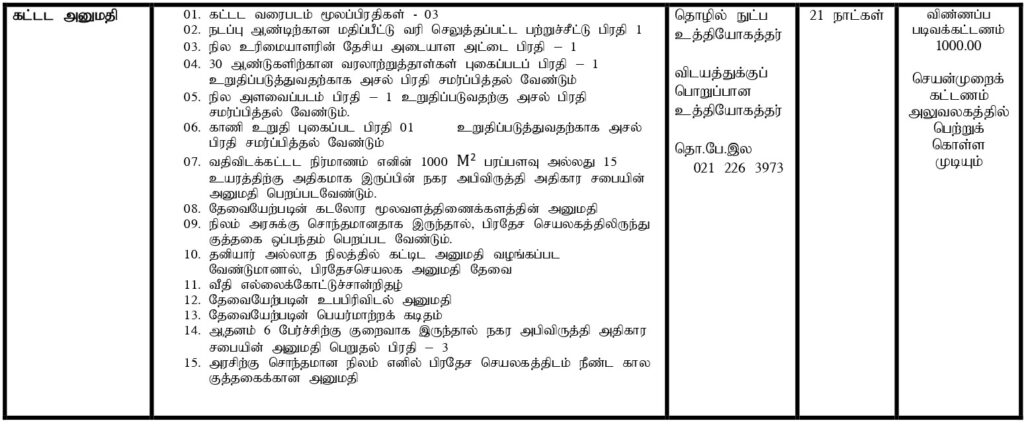 கட்டட அனுமதி
01. கட்டட வரைபடம் மூலப்பிரதிகள் - 03
02. நடப்பு ஆண்டிற்கான மதிப்பீட்டு வரி செலுத்தப்பட்ட பற்றுச்சீட்டு பிரதி 1
03. நில உரிமையாளரின் தேசிய அடையாள அட்டை பிரதி – 1
04. 30 ஆண்டுகளிற்கான வரலாற்றுத்தாள்கள் புகைப்படப் பிரதி – 1
உறுதிப்படுத்துவதற்காக அசல் பிரதி சமர்ப்பித்தல் வேண்டும்
05. நில அளவைப்படம் பிரதி – 1 உறுதிப்படுவதற்கு அசல் பிரதி
சமர்ப்பித்தல் வேண்டும்.
06. காணி உறுதி புகைப்பட பிரதி 01 உறுதிப்படுத்துவதற்காக அசல்
பிரதி சமர்ப்பித்தல் வேண்டும்
07. வதிவிடக்கட்டட நிர்மாணம் எனின் 1000 M² பரப்பளவு அல்லது 15
உயரத்திற்கு அதிகமாக இருப்பின் நகர அபிவிருத்தி அதிகார சபையின்
அனுமதி பெறப்படவேண்டும்.
08. தேவையேற்படின் கடலோர மூலவளத்திணைக்களத்தின் அனுமதி
09. நிலம் அரசுக்கு சொந்தமானதாக இருந்தால், பிரதேச செயலகத்திலிருந்து
குத்தகை ஒப்பந்தம் பெறப்பட வேண்டும்.
10. தனியார் அல்லாத நிலத்தில் கட்டிட அனுமதி வழங்கப்பட
வேண்டுமானால், பிரதேசசெயலக அனுமதி தேவை
11. வீதி எல்லைக்கோட்டுச்சான்றிதழ்
12. தேவையேற்படின் உபபிரிவிடல் அனுமதி
13. தேவையேற்படின் பெயர்மாற்றக் கடிதம்
14. ஆதனம் 6 பேர்ச்சிற்கு குறைவாக இருந்தால் நகர அபிவிருத்தி அதிகார
சபையின் அனுமதி பெறுதல் பிரதி – 3
15. அரசிற்கு சொந்தமான நிலம் எனில் பிரதேச செயலகத்திடம் நீண்ட கால
குத்தகைக்கான அனுமதி
தொழில் நுட்ப
உத்தியோகத்தர்
விடயத்துக்குப்
பொறுப்பான
உத்தியோகத்தர்
தொ.பே.இல
021 226 3973
21 நாட்கள்
விண்ணப்ப
படிவக்கட்டணம்
1000.00
செயன்முறைக்
கட்டணம்
அலுவலகத்தில்
பெற்றுக்
கொள்ள
முடியும்